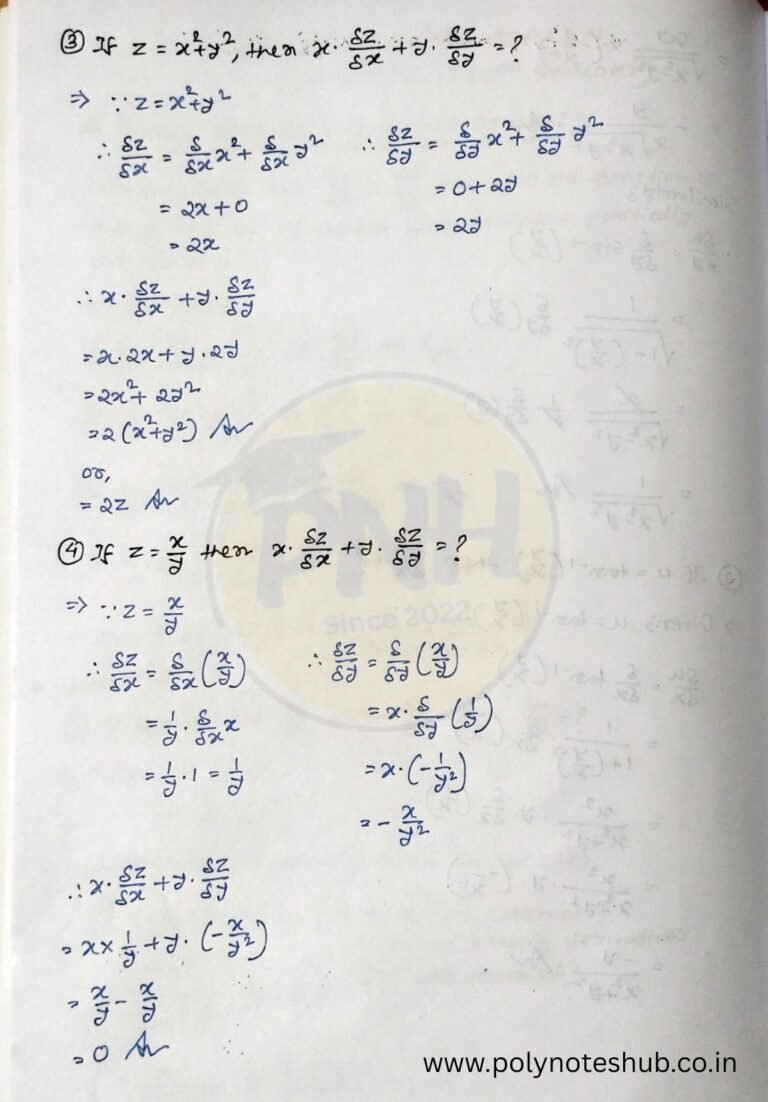 ③ If z = x²+y², then x· δz/δx + y· δz/δy = ?
⇒ ∵ z = x²+y²
∴ δz/δx = δ/δx x² + δ/δx y²
= 2x+0
= 2x
∴ δz/δy = δ/δy x² + δ/δy y²
= 0+2y
= 2y
∴ x· δz/δx + y· δz/δy
= x·2x + y·2y
= 2x²+ 2y²
= 2(x²+y²) Ans
or,
= 2z Ans
④ If z = x/y then x· δz/δx + y· δz/δy = ?
⇒ ∵ z = x/y
∴ δz/δx = δ/δx (x/y)
= 1/y · δ/δx x
= 1/y · 1 = 1/y
∴ δz/δy = δ/δy (x/y)
= x· δ/δy (1/y)
= x·(-1/y²)
= - x/y²
∴ x· δz/δx + y· δz/δy
= x× 1/y + y· (-x/y²)
= x/y - x/y
= 0 Ans
PNH
Since 2022
www.polynoteshub.co.in